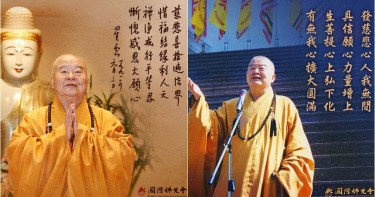 慈悲喜捨遍法界
惜福結緣利人天
禪淨戒行平等忍
慚愧感恩大願心
國際佛光會
發慈悲心人我無間
具信願心力量增上
生菩提心上弘下化
有無我心擴大圓滿
國際佛光會